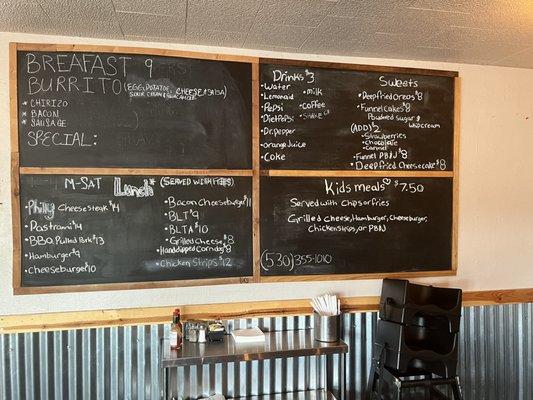 BREAKFAST 9
BURRITO (EGG, POTATOE, CHEESE & SALSA)
SOUR CREAM & GUACAMOLE
* CHIRIZO
* BACON
* SAUSAGE
SPECIAL:
M-SAT Lunch* (SERVED WITH FRIES)
Philly Cheesesteak $14
* Pastrami $14
* BBQ Pulled Pork $13
* Hamburger $9
* cheeseburger $10
* Bacon cheeseburger $11
* BLT $9
* BLTA $10
* Grilled Cheese $8
* Hand dipped Corndog $8
* Chicken Strips $12
Drinks $3
* Water
* Lemonade
* Pepsi
* Diet Pepsi
* Dr. pepper
* orange Juice
* Coke
* milk
* coffee
* SHAKE
Sweets
* Deepfried oreos $8
* Funnel cakes $8
Powdered Sugar
whip cream
(ADD) $2
- Strawberries
- Chocolate
- Caramel
* Funnel PB&J $8
* Deep Fried Cheesecake $8
Kids meals $7.50
Served with chips or fries
Grilled cheese, Hamburger, Cheeseburger,
Chicken Strips, or PB&J
(530) 355-1010